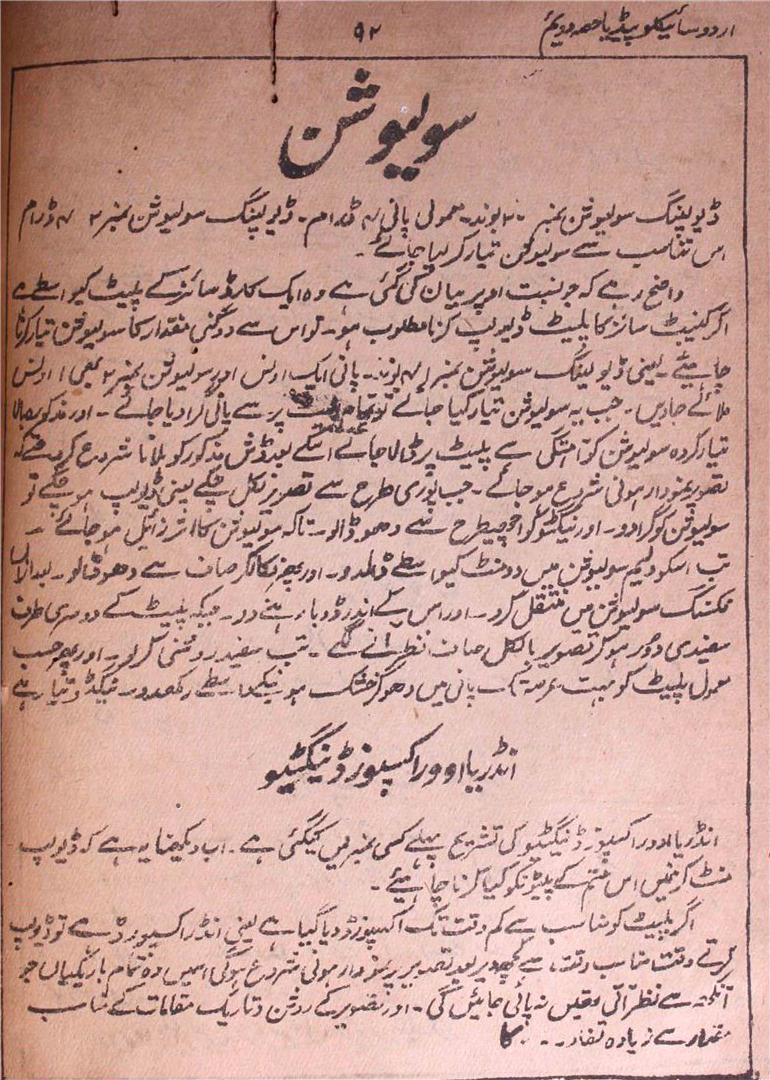 اردو سائیکلوپیڈیا حصہ دویم
۹۲
سولیوشن
ڈیولپنگ سولیوشن نمبر ۲۰ بوند۔ معمولی پانی ۴ ڈرام۔ ڈیولپنگ سولیوشن نمبر ۲ ۴ ڈرام
اس تناسب سے سولیوشن تیار کر لیا جائے۔
واضح رہے کہ جو نسبت اوپر بیان کی گئی ہے وہ ایک کارڈ سائز کے پلیٹ کیواسطے ہے
اگر کیبنٹ سائز کا پلیٹ ڈیولپ کرنا مطلوب ہو۔ تو اس سے دوگنی مقدار کا سولیوشن تیار کرنا
چاہیئے۔ یعنی ڈیولپنگ سولیوشن نمبر ۱ بوند۔ پانی ایک اونس اور سولیوشن نمبر ۲ بھی ۱ اونس
ملائے جاویں۔ جب یہ سولیوشن تیار کیا جائے تو پر سے پانی گرا دیا جائے۔ اور مذکورہ بالا
تیار کردہ سولیوشن کو آہستگی سے پلیٹ پر ڈالا جائے اسکے بعد ڈش مذکور کو ہلانا شروع کرو حتےٰ کہ
تصویر نمودار ہونی شروع ہو جائے۔ جب پوری طرح سے تصویر نکل چکے یعنی ڈیولپ ہو چکے تو
سولیوشن کو گرادو۔ اور نیگٹو کو اچھیطرح سے دھو ڈالو۔ تاکہ سولیوشن کا اثر زائل ہو جائے۔
تب اسکو ایلم سولیوشن میں دو منٹ کیواسطے ڈالدو۔ اور پھر نکالکر صاف سے دھو ڈالو۔ بعد ازاں
فکسنگ سولیوشن میں منتقل کرو۔ اور اس کے اندر ڈوبا رہنے دو۔ جبکہ پلیٹ کے دوسری طرف
سفیدی دور ہو کر تصویر بالکل صاف نظر آنے لگے۔ تب سفید روشنی کر لو۔ اور پھر حسب
معمول پلیٹ کو بہت عرصہ تک پانی میں دھو کر خشک ہونیکے واسطے رکھدو۔ نیگٹو تیار ہے
انڈر یا اوور اکسپوزڈ نیگٹیو
انڈر یا اوور اکسپوزڈ نیگٹیو کی تشریح پہلے کسی نمبر میں کیگئی ہے۔ اب دیکھنا یہ ہے کہ ڈیولپ
منٹ کرنمیں اس قسم کے پلیٹونکو کیا کرنا چاہیئے۔
اگر پلیٹ کو مناسب سے کم وقت تک اکسپوزڈ دیا گیا ہے یعنی انڈر اکسپوزڈ ہے تو ڈیولپ
کرتے وقت مناسب وقت سے کچھ دیر بعد تصویر نمودار ہونی شروع ہوگی اسمیں وہ تمام باریکیاں جو
آنکھ سے نظر آتی تھیں نہ پائی جائیں گی۔ اور تصویر کے روشن و تاریک مقامات کے مناسب
مقدار سے زیادہ